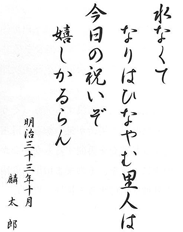 水なくて
なりはひなやむ里人は
今日の祝いぞ
嬉しかるらん
明治三十三年十月
麟太郎